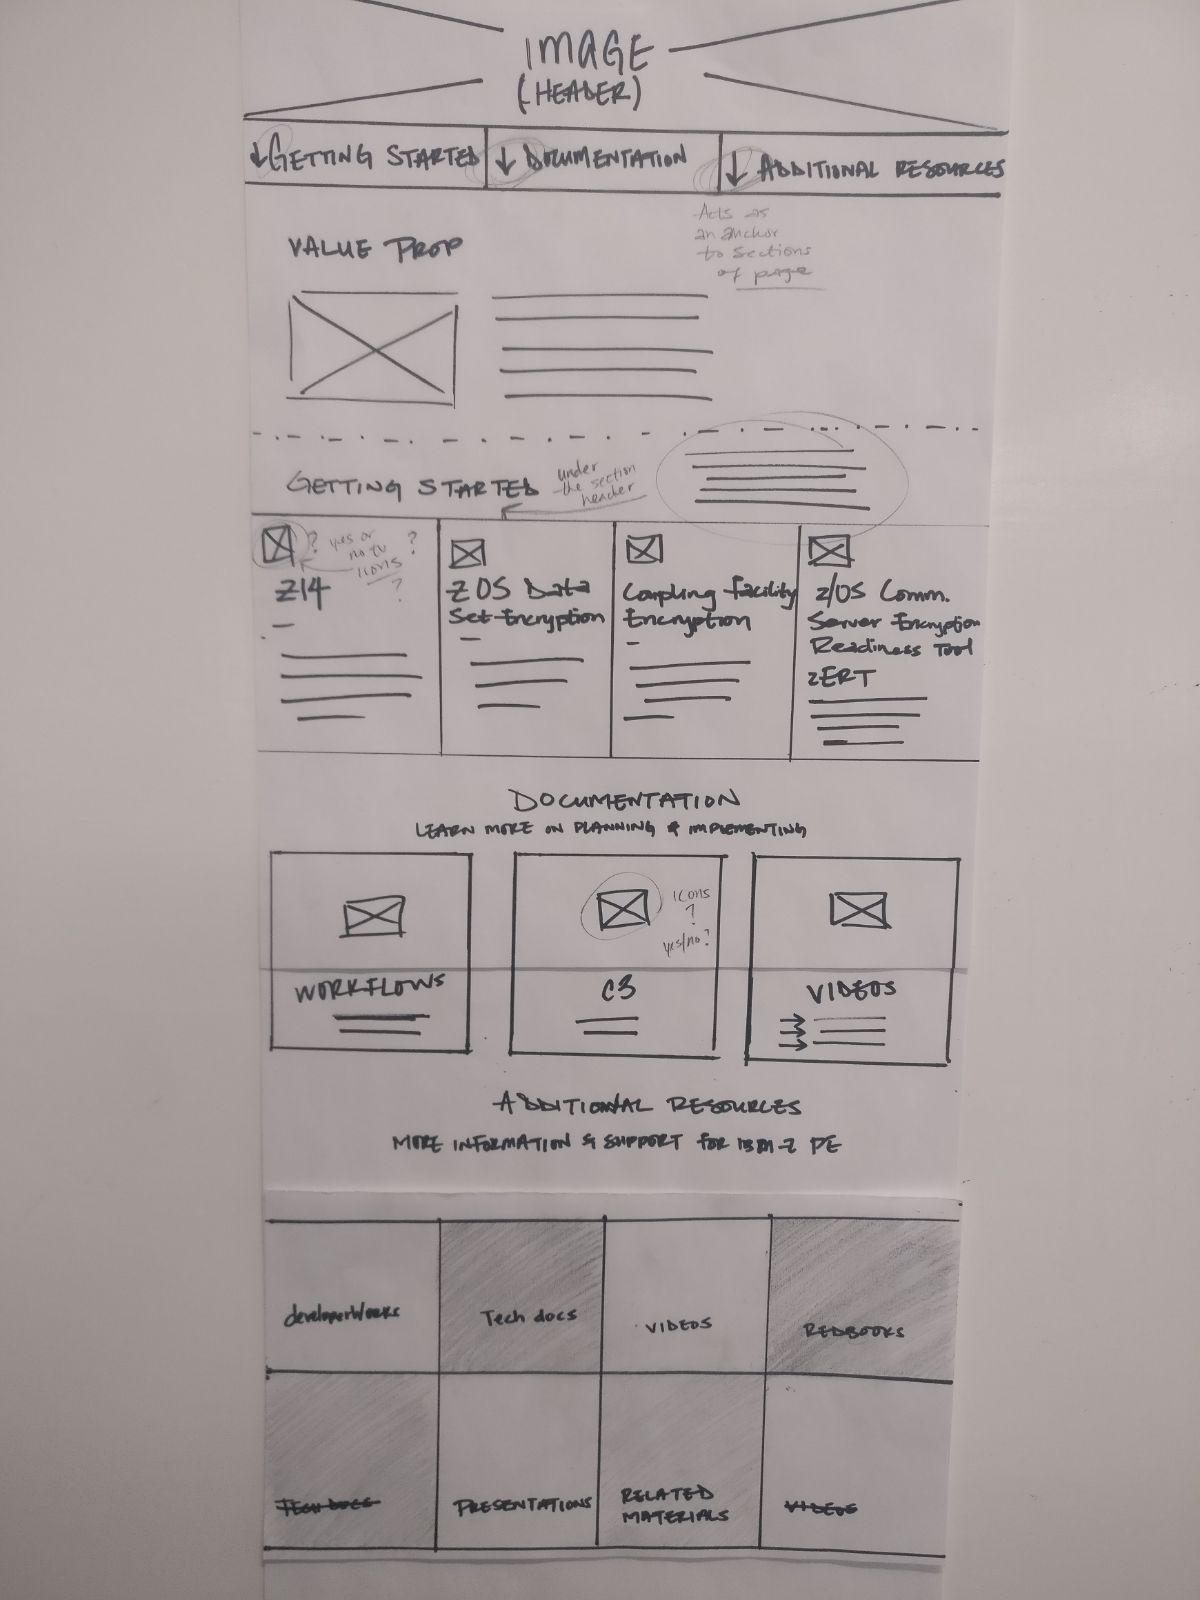 IMAGE
(HEADER)
↓ GETTING STARTED
↓ DOCUMENTATION
↓ ADDITIONAL RESOURCES
Acts as
an anchor
to sections
of page
VALUE PROP
GETTING STARTED
under
the section
header
? yes or ?
no to
icons
?
Z14
Z OS Data
Set Encryption
Coupling Facility
Encryption
z/OS Comm.
Server Encryption
Readiness Tool
zERT
DOCUMENTATION
LEARN MORE ON PLANNING & IMPLEMENTING
icons
?
yes/no?
WORKFLOWS
C3
VIDEOS
ADDITIONAL RESOURCES
MORE INFORMATION & SUPPORT FOR IBM Z PE
developerWorks
Tech docs
VIDEOS
REDBOOKS
TECH DOCS
PRESENTATIONS
RELATED
MATERIALS
VIDEOS